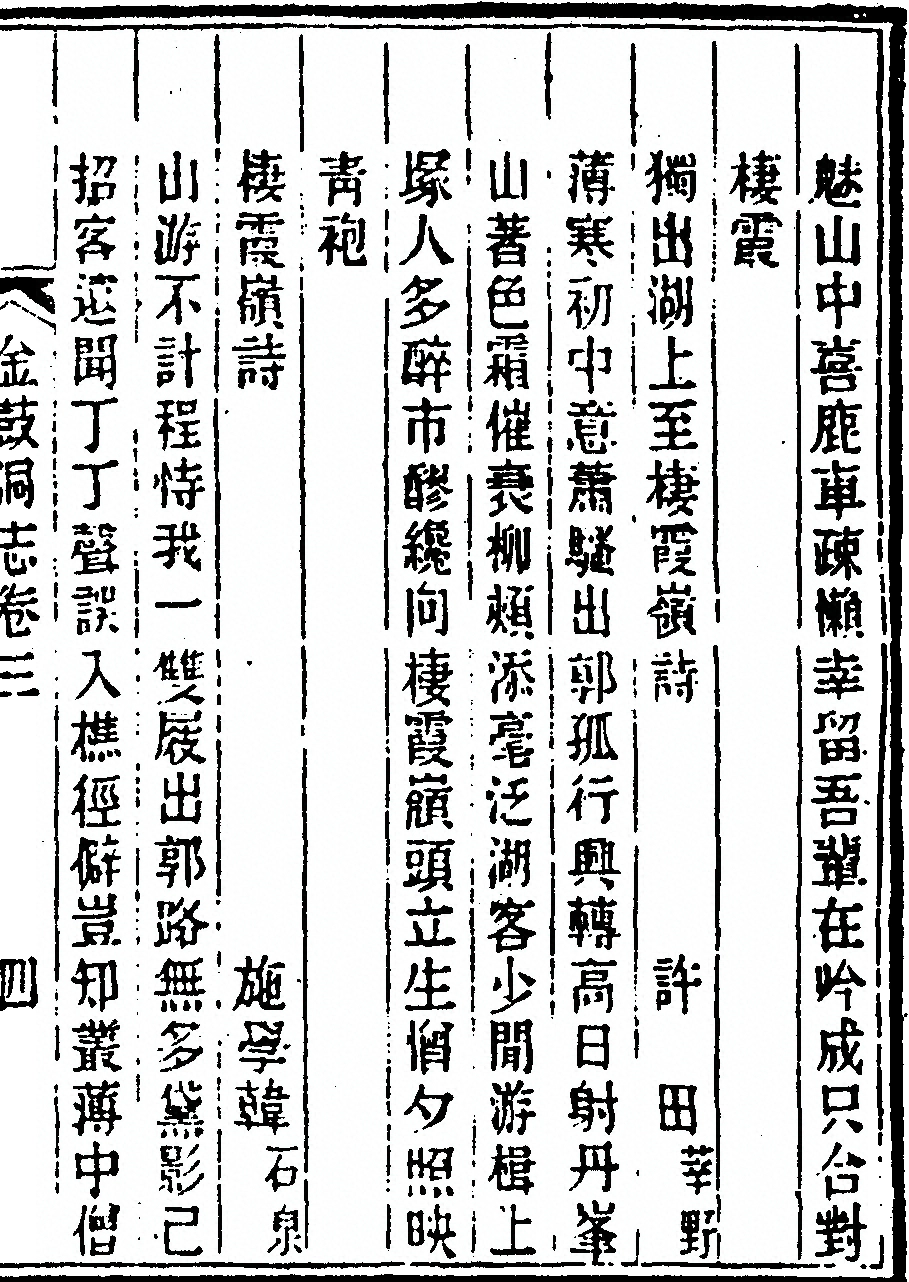 魅山中喜鹿車疎懶幸留吾輩在吟成只合對
棲霞
獨出湖上至棲霞嶺詩　許田莘野
薄寒初中意蕭騷出郭孤行興轉高日射丹峯
山著色霜催衰柳頰添毫泛湖客少閒游楫上
塚人多醉市醪纔向棲霞嶺頭立生憎夕照映
青袍
棲霞嶺詩　施學韓石泉
山游不計程恃我一雙屐出郭路無多黛影已
招客遠聞丁丁聲誤入樵徑僻豈知叢薄中僧
金鼓洞志卷三　四